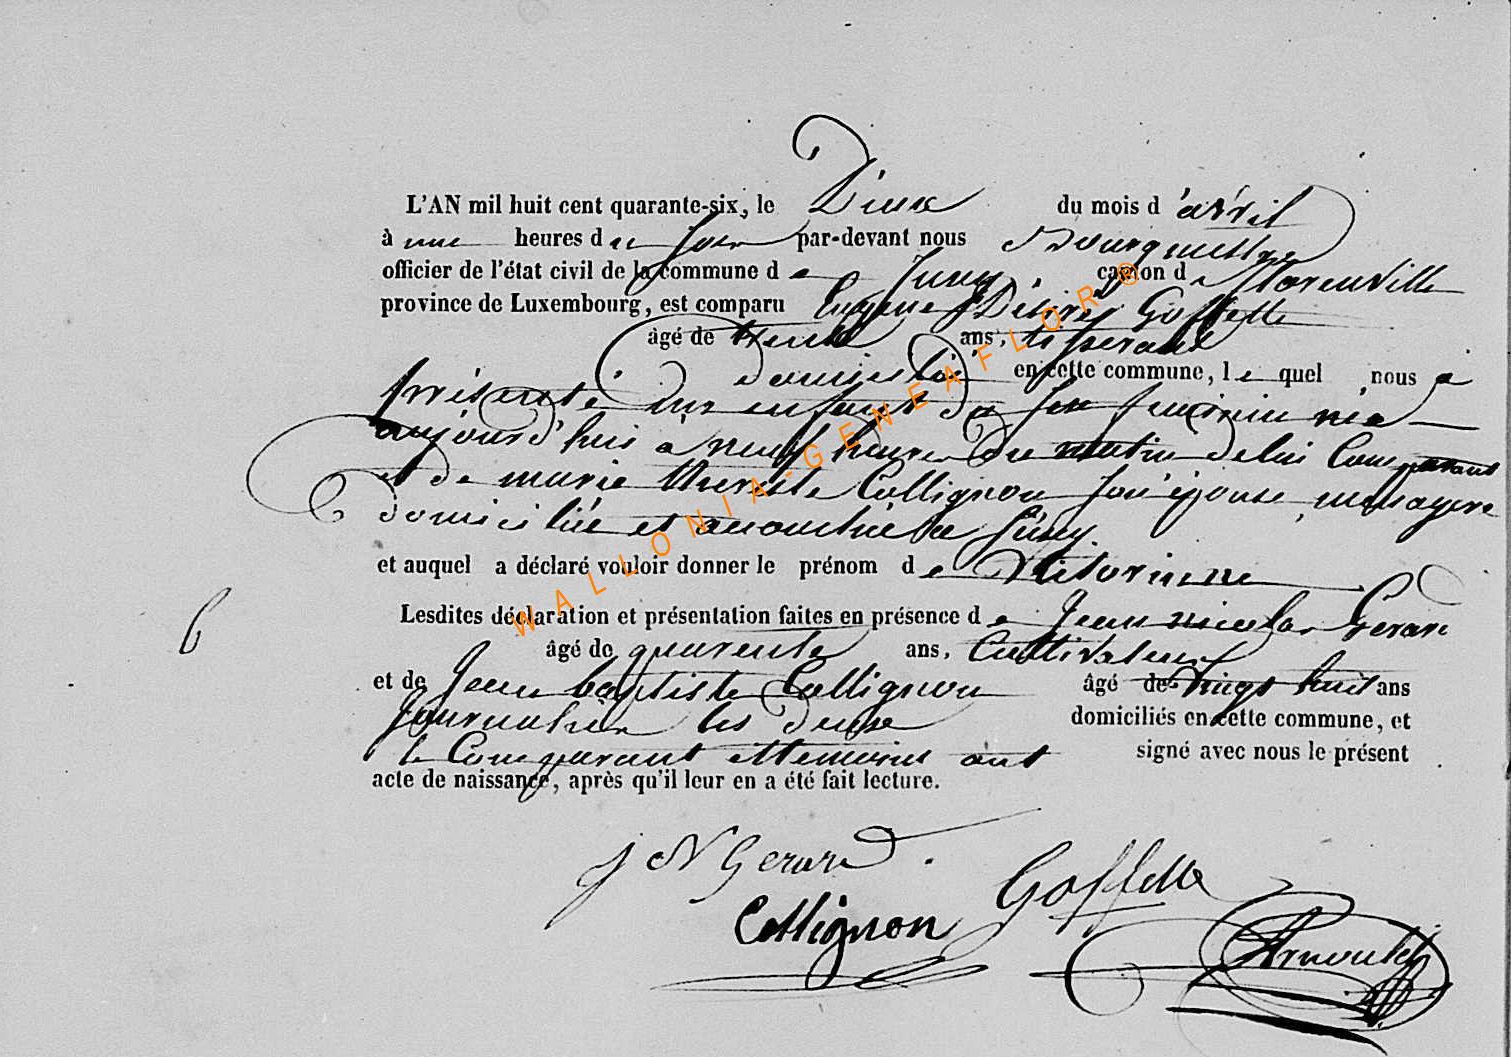 L'AN mil huit cent quarante-six, le Deux du mois d'avril
à une heures de soir par-devant nous Bourguemestre
officier de l'état civil de la commune de Suny canton de Florenville
province de Luxembourg, est comparu Eugene Désiré Goffette
âgé de trente ans, tisserant
domicilié en cette commune, lequel nous a
présenté un enfant du sexe feminin née
aujourd'hui à neuf heure du matin de lui Comparant
et de marie therese Collignon son épouse, menagere
domiciliée et accouchée a Suny.
et auquel a déclaré vouloir donner le prénom de Victorinne
Lesdites déclaration et présentation faites en présence de Jean nicolas Gerard
âgé de quarente ans, Cultivateur
et de Jean baptiste Collignon âgé de vingt huit ans
Journalier les deux domiciliés en cette commune, et
le Comparant et temoins ont signé avec nous le présent
acte de naissance, après qu'il leur en a été fait lecture.
6
J N Gerard.
Goffette
Collignon
Arnould
WALLONIA-GENEAFLOR®